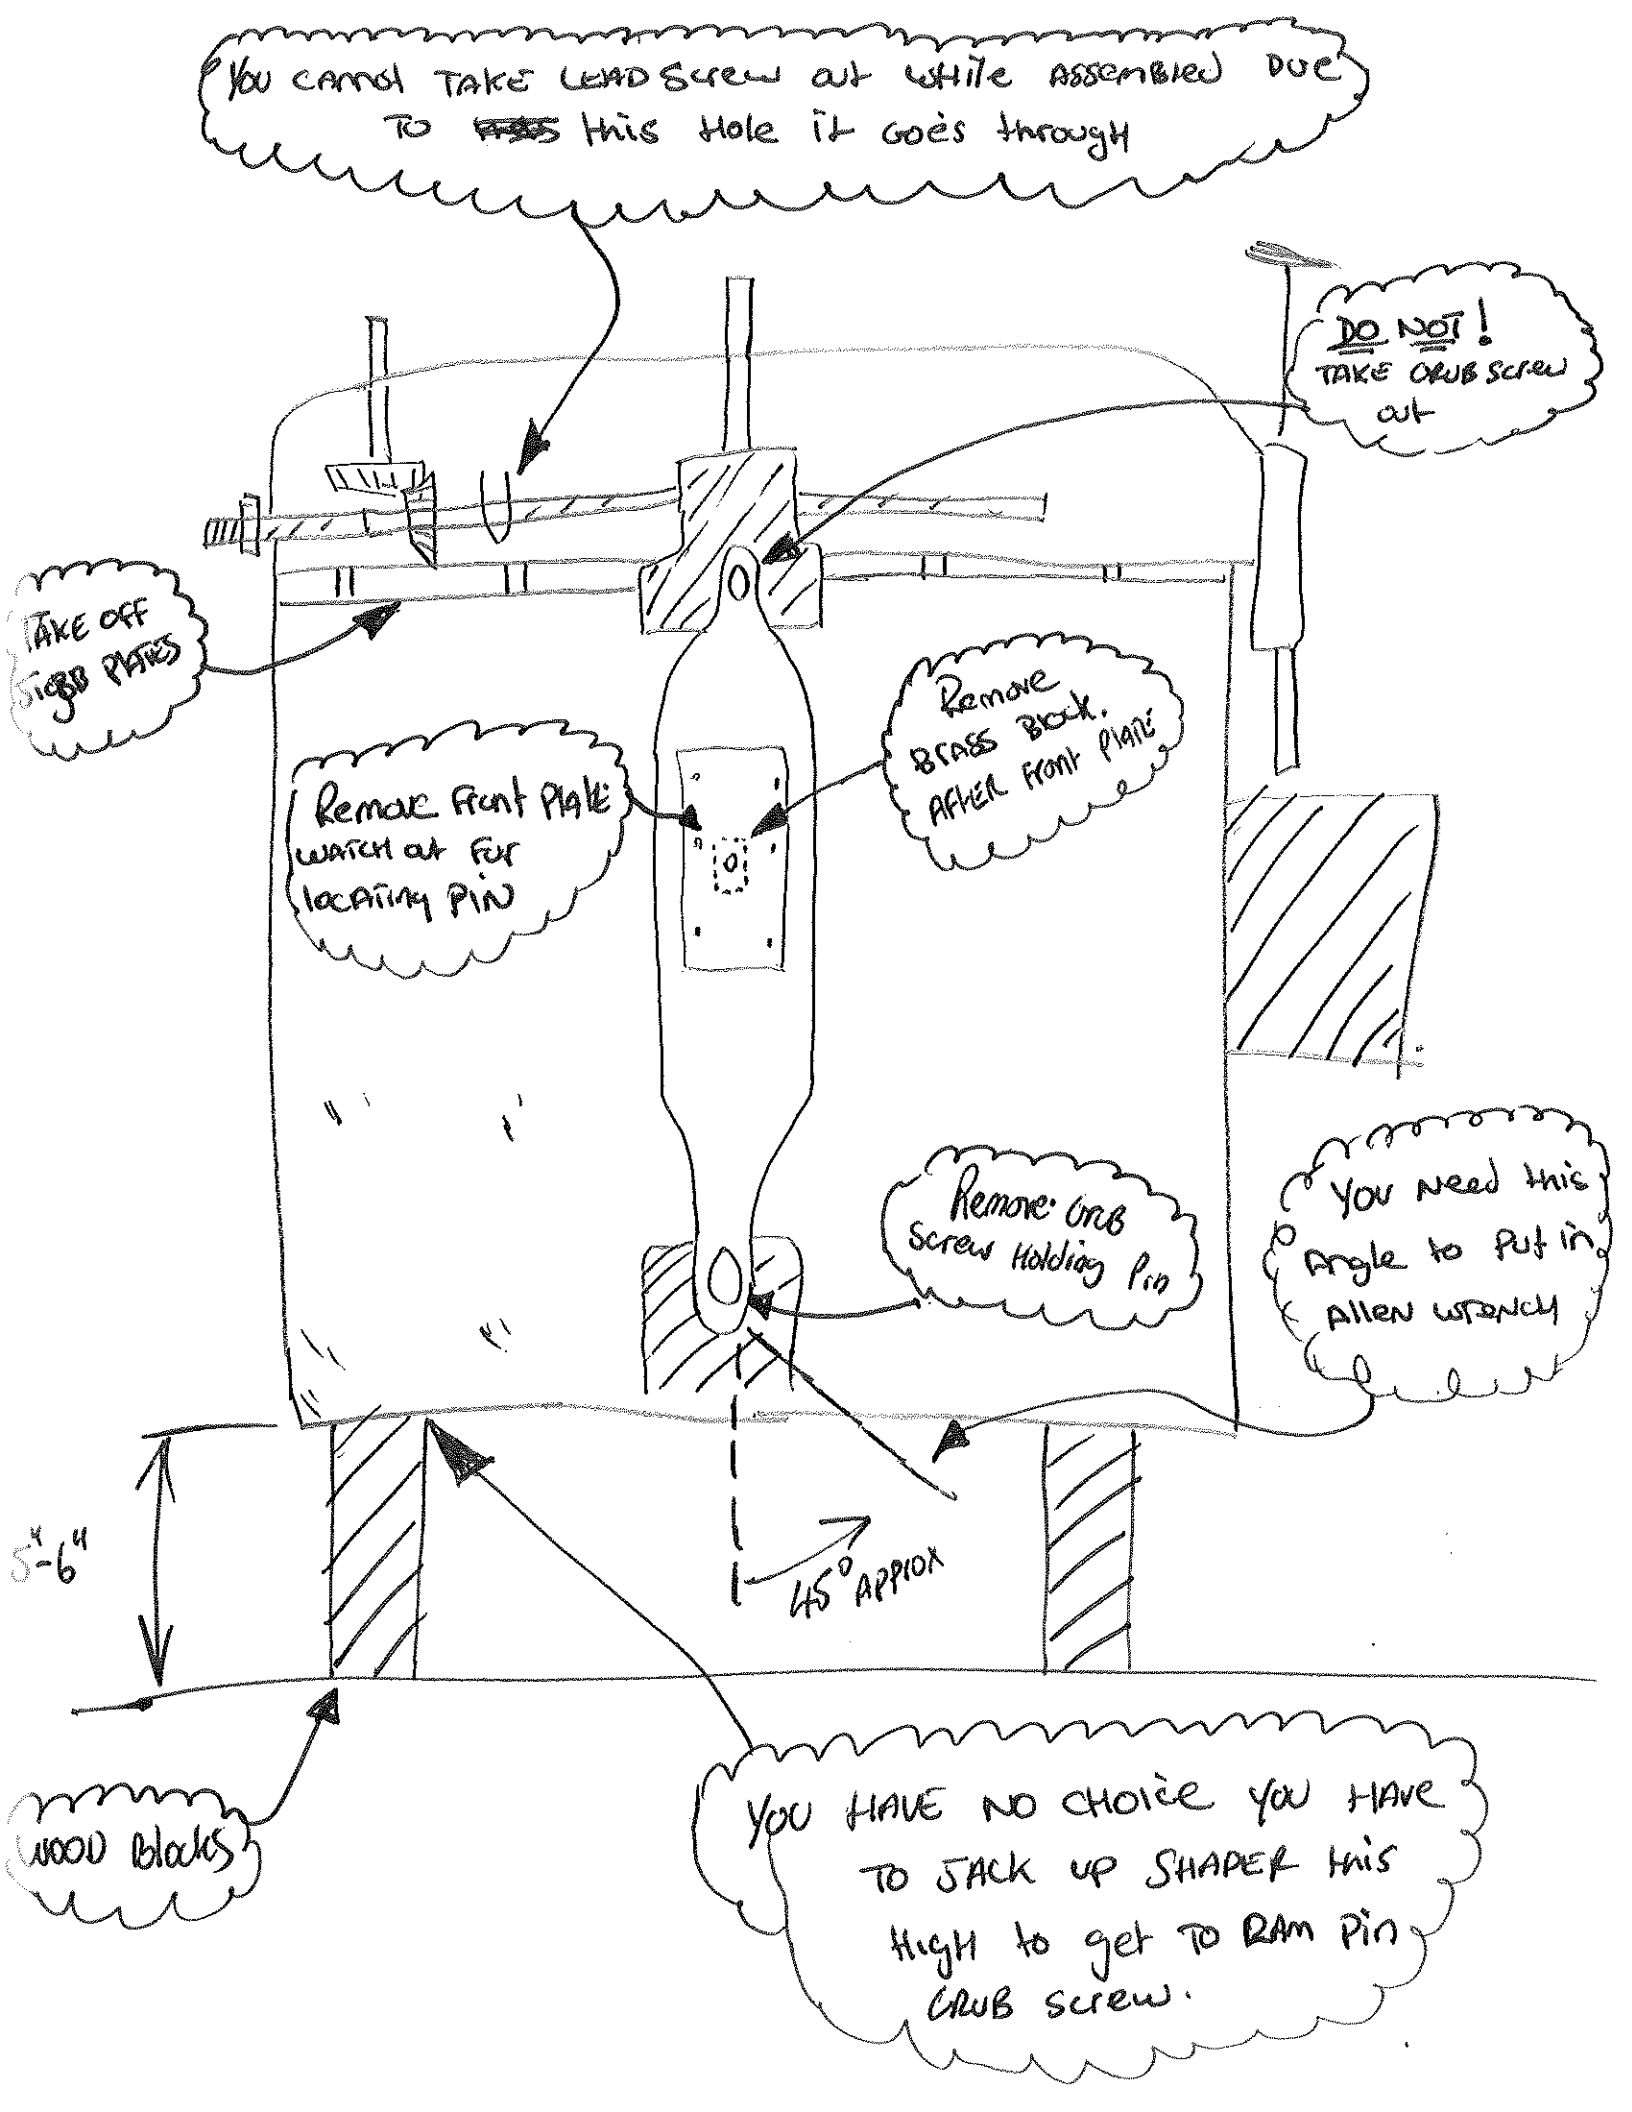 YOU CANNOT TAKE LEADSCREW OUT WHILE ASSEMBLED DUE
TO this Hole it Goes through
DO NOT!
TAKE GRUB SCREW
OUT
TAKE OFF
PLATES
Remove Front Plate
WATCH OUT FOR
locating PIN
Remove
BRASS Block.
AFTER Front PLATE
Remove GRUB
SCREW Holding Pin
YOU Need this
Angle to Put in
Allen WRENCH
5"-6"
45° APPROX
WOOD Blocks
YOU HAVE NO CHOICE YOU HAVE
TO JACK UP SHAPER this
HIGH to get TO RAM PIN
GRUB SCREW.